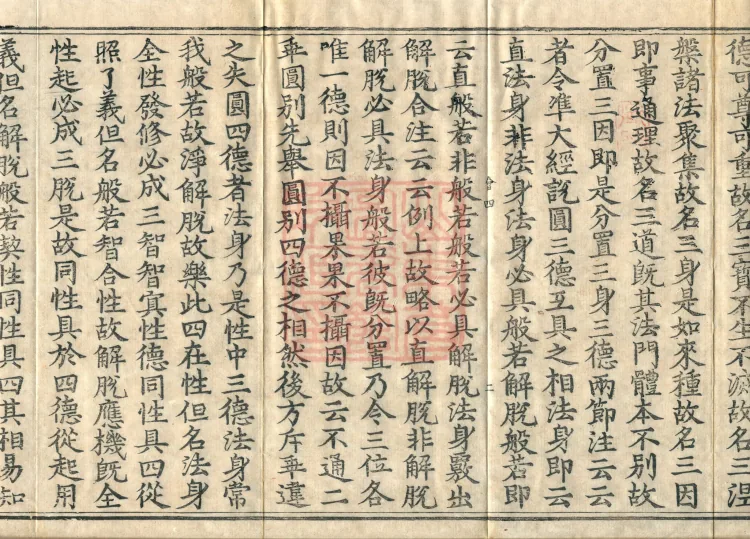 德可尊可重故名三寶不生不滅故名三涅
槃諸法聚集故名三身是如來種故名三因
即事通理故名三道旣其法門體本不別故
分置三因即是分置三身三德兩節注云云
者令準大經說圓三德互具之相法身即云
直法身非法身法身必具般若解脫般若即
四 二
云直般若非般若般若必具解脫法身覈出
解脫合注云云例上故略以直解脫非解脫
解脫必具法身般若彼旣分置乃令三位各
唯一德則因不攝果果不攝因故云不通二
乖圓別先舉圓別四德之相然後方斥乖違
之失圓四德者法身乃是性中三德法身常
我般若故淨解脫故樂此四在性但名法身
全性發修必成三智智冥性德同性具四從
照了義但名般若智合性故解脫應機旣全
性起必成三脫是故同性具於四德從起用
義但名解脫般若契性同性具四其相易知